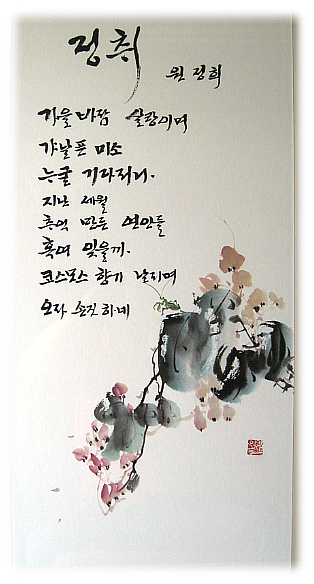 정취
원 정희
가을 바람 살랑이며
가날픈 미소
누굴 기다리니.
지난 세월
추억 만든 연인들
혹여 잊을까.
코스모스 향기 날리며
오라 손짓 하네